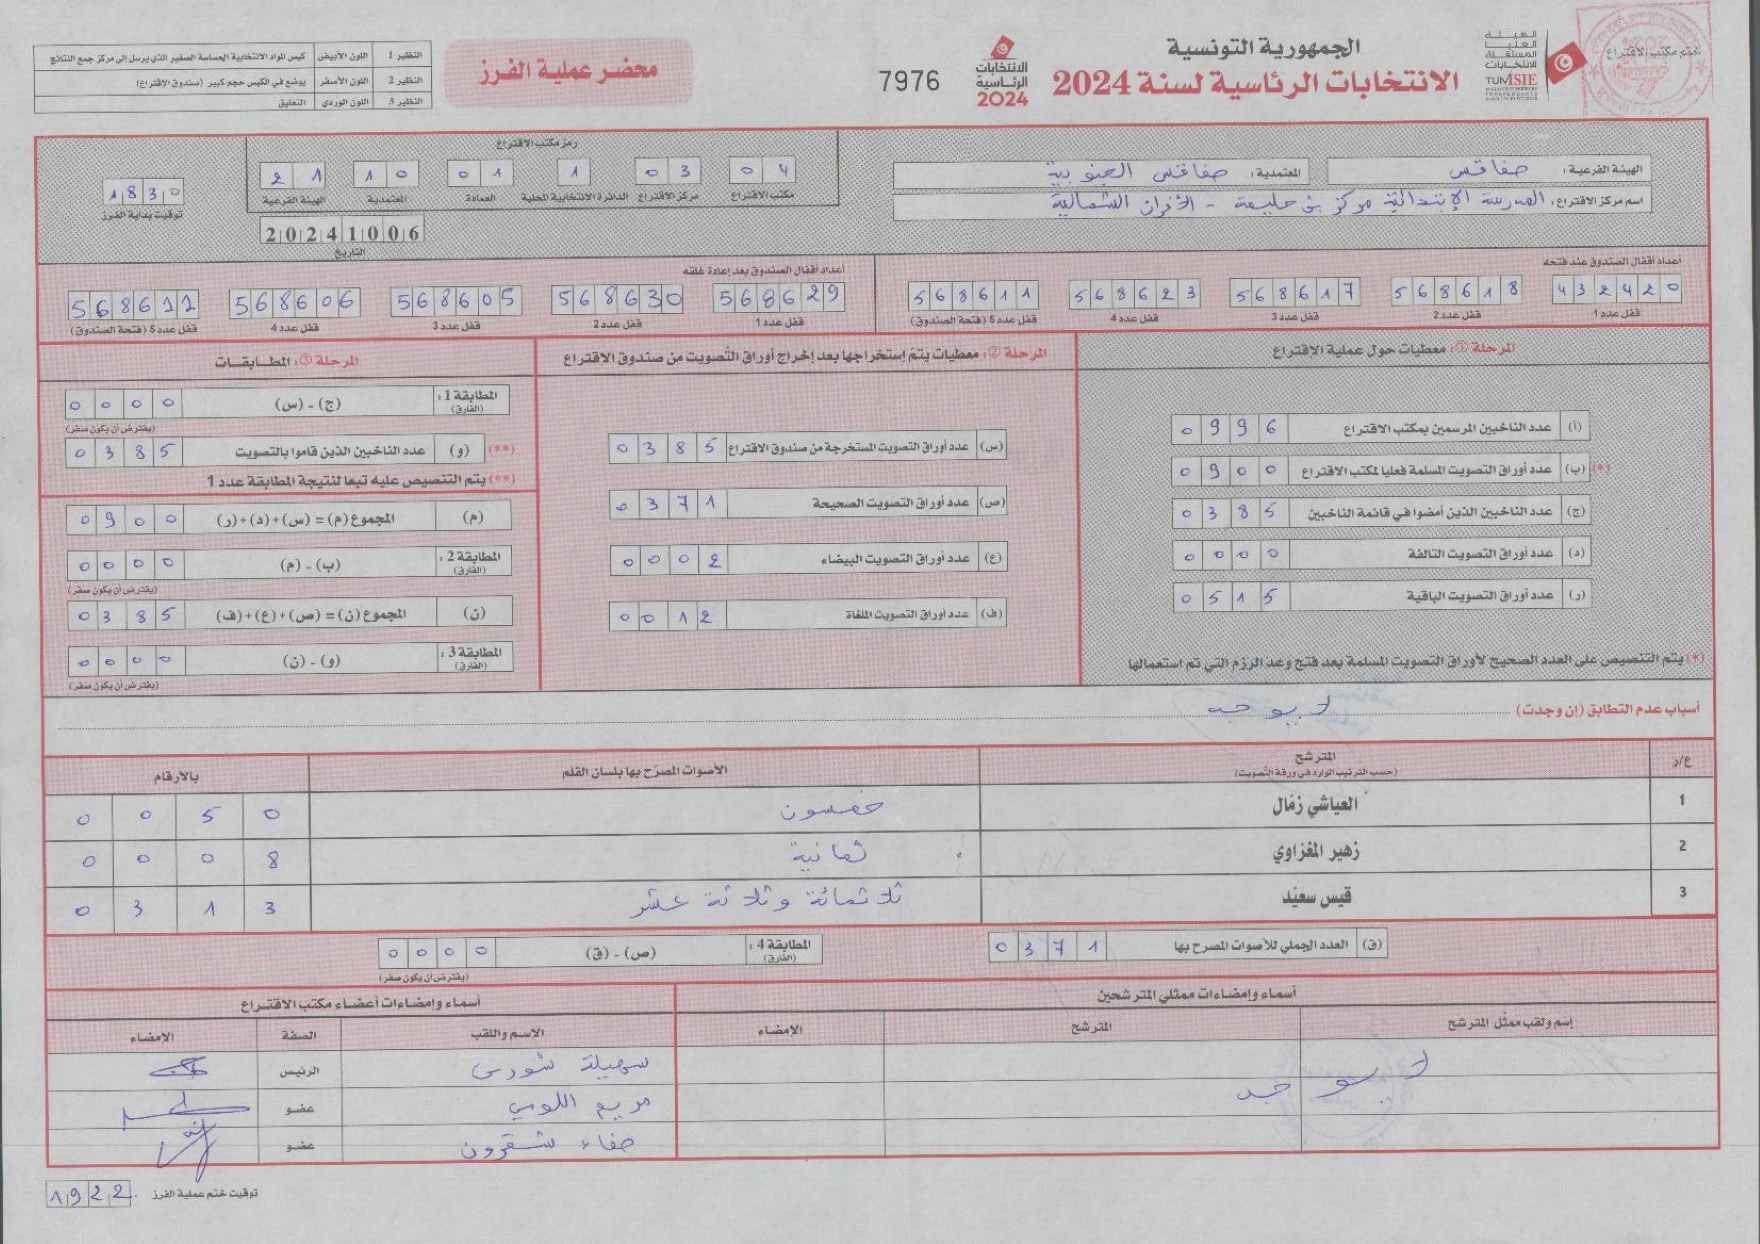 ختم مكتب الاقتراع
الهيئة العليا المستقلة للانتخابات
TUNISIE
الجمهورية التونسية
الانتخابات الرئاسية لسنة 2024
الانتخابات الرئاسية 2024
7976
محضر عملية الفرز
النظير 1 اللون الأبيض كيس المواد الانتخابية الحساسة الصغير الذي يرسل الى مركز جمع النتائج
النظير 2 اللون الأصفر يوضع في الكيس حجم كبير (صندوق الاقتراع)
النظير 3 اللون الوردي التعليق
الهيئة الفرعية: صفاقس
المعتمدية: صفاقس الجنوبية
اسم مركز الاقتراع: المدرسة الإبتدائية مركز بن حليمة - الأفران الشمالية
رمز مكتب الاقتراع
04 مكتب الاقتراع
03 مركز الاقتراع
1 الدائرة الانتخابية المحلية
01 العمادة
10 المعتمدية
21 الهيئة الفرعية
20241006
التاريخ
1830
توقيت بداية الفرز
أعداد أقفال الصندوق عند فتحه
432420 قفل عدد 1
568618 قفل عدد 2
568617 قفل عدد 3
568623 قفل عدد 4
568611 قفل عدد 5 (فتحة الصندوق)
أعداد أقفال الصندوق بعد إعادة غلقه
568629 قفل عدد 1
568630 قفل عدد 2
568605 قفل عدد 3
568606 قفل عدد 4
568612 قفل عدد 5 (فتحة الصندوق)
المرحلة ①: معطيات حول عملية الاقتراع
(أ) عدد الناخبين المرسمين بمكتب الاقتراع 0996
(*) (ب) عدد أوراق التصويت المسلمة فعليا لمكتب الاقتراع 0900
(ج) عدد الناخبين الذين أمضوا في قائمة الناخبين 0385
(د) عدد أوراق التصويت التالفة 0000
(ر) عدد أوراق التصويت الباقية 0515
(*) يتم التنصيص على العدد الصحيح لأوراق التصويت المسلمة بعد فتح وعد الرزم التي تم استعمالها
المرحلة ②: معطيات يتم إستخراجها بعد إخراج أوراق التصويت من صندوق الاقتراع
(س) عدد أوراق التصويت المستخرجة من صندوق الاقتراع 0385
(ص) عدد أوراق التصويت الصحيحة 0371
(ع) عدد أوراق التصويت البيضاء 0002
(ف) عدد أوراق التصويت الملغاة 0012
المرحلة ③: المطابقات
المطابقة 1: (الفارق) (ج) - (س) 0000
(يفترض أن يكون صفر)
(**) (و) عدد الناخبين الذين قاموا بالتصويت 0385
(**) يتم التنصيص عليه تبعا لنتيجة المطابقة عدد 1
(م) المجموع (م) = (س)+(د)+(ر) 0900
المطابقة 2: (الفارق) (ب) - (م) 0000
(يفترض أن يكون صفر)
(ن) المجموع (ن) = (ص)+(ع)+(ف) 0385
المطابقة 3: (الفارق) (و) - (ن) 0000
(يفترض أن يكون صفر)
أسباب عدم التطابق (إن وجدت) لا يوجد
ع/ر المترشح (حسب الترتيب الوارد في ورقة التصويت) الأصوات المصرّح بها بلسان القلم بالأرقام
1 العياشي زمّال خمسون 0050
2 زهير المغزاوي ثمانية 0008
3 قيس سعيّد ثلاثمائة وثلاثة عشر 0313
(ق) العدد الجملي للأصوات المصرح بها 0371
المطابقة 4: (الفارق) (ص) - (ق) 0000
(يفترض أن يكون صفر)
أسماء وإمضاءات ممثلي المترشحين
إسم ولقب ممثّل المترشح المترشح الإمضاء
لا يوجد
أسماء وإمضاءات أعضاء مكتب الاقتراع
الاسم واللقب الصفة الامضاء
سهيلة شورى الرئيس
مريم اللومي عضو
صفاء شقرون عضو
توقيت ختم عملية الفرز 1922